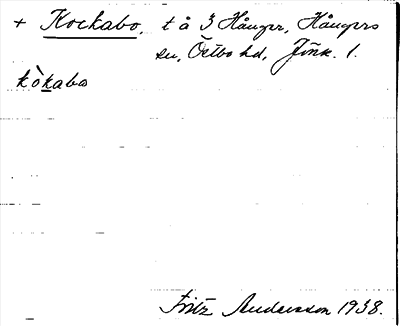 + Kockabo, t å 3 Hånger, Hångers
sn, Östbo hd, Jönk. l.
kòkabo
Fritz Andersson 1938.